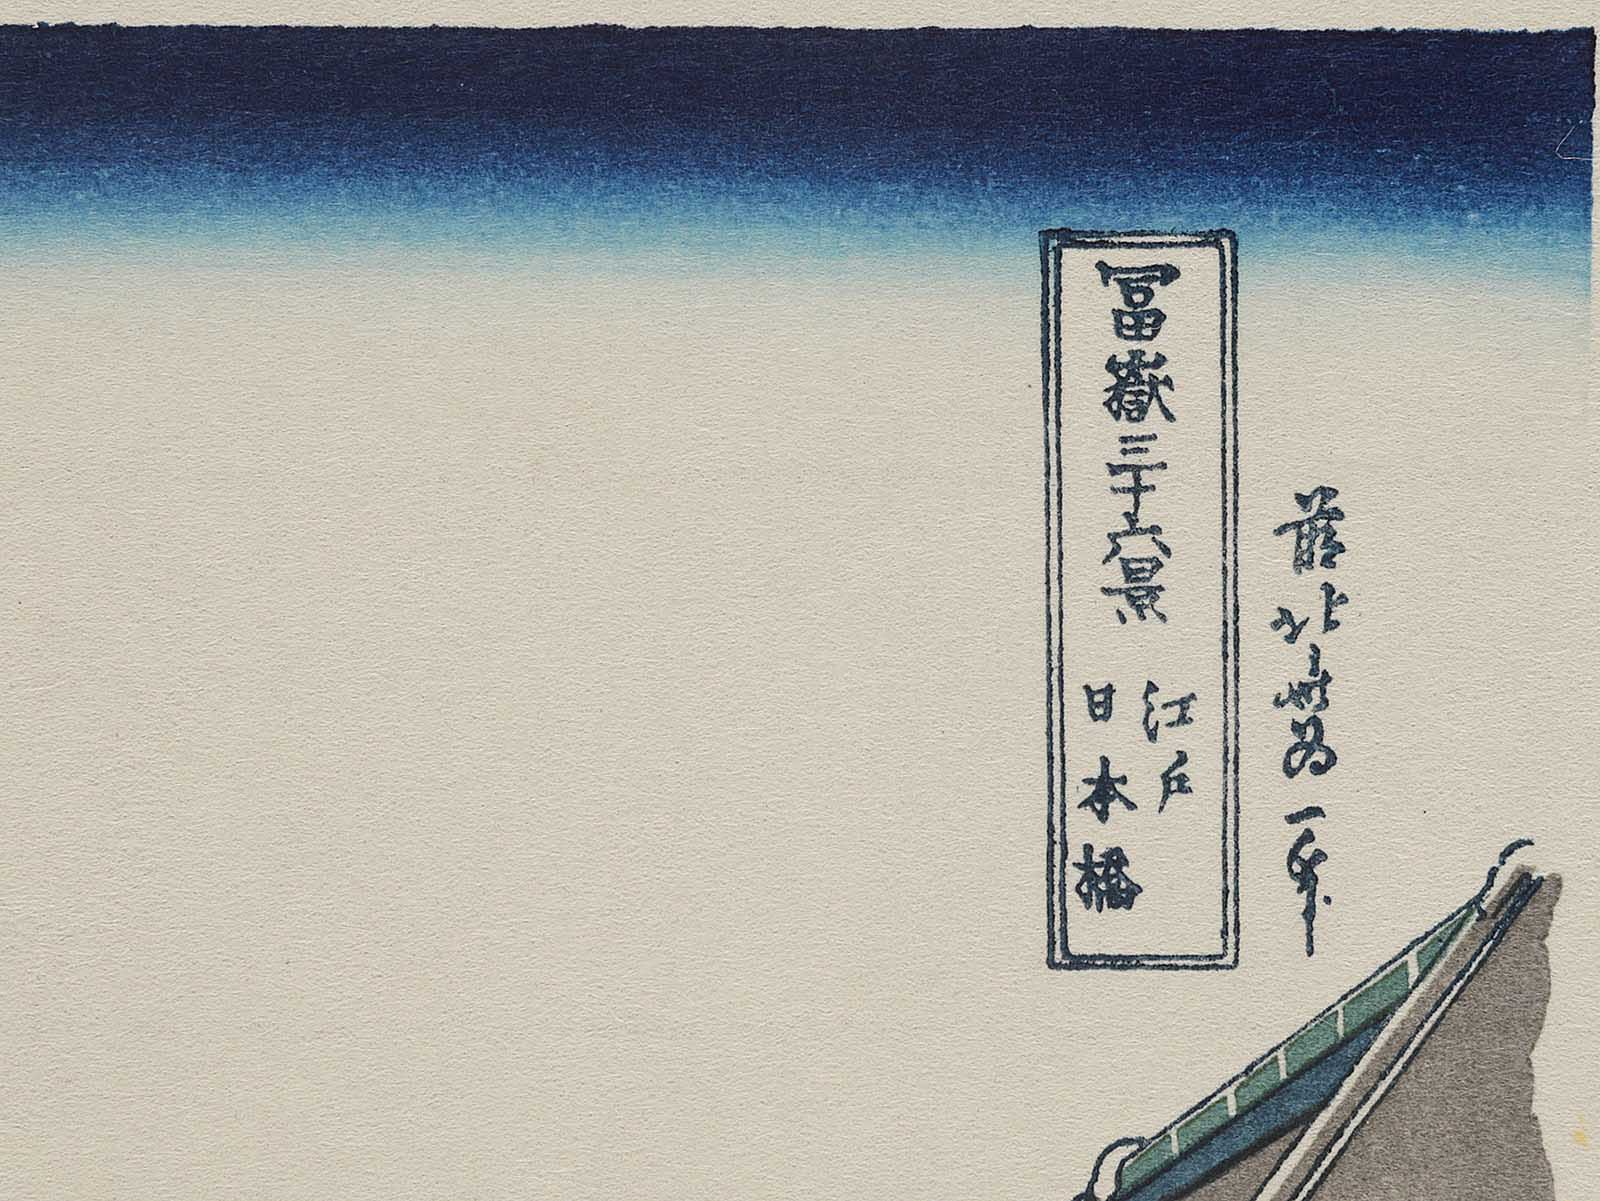 前北斎為一筆
冨嶽三十六景
江戸
日本橋